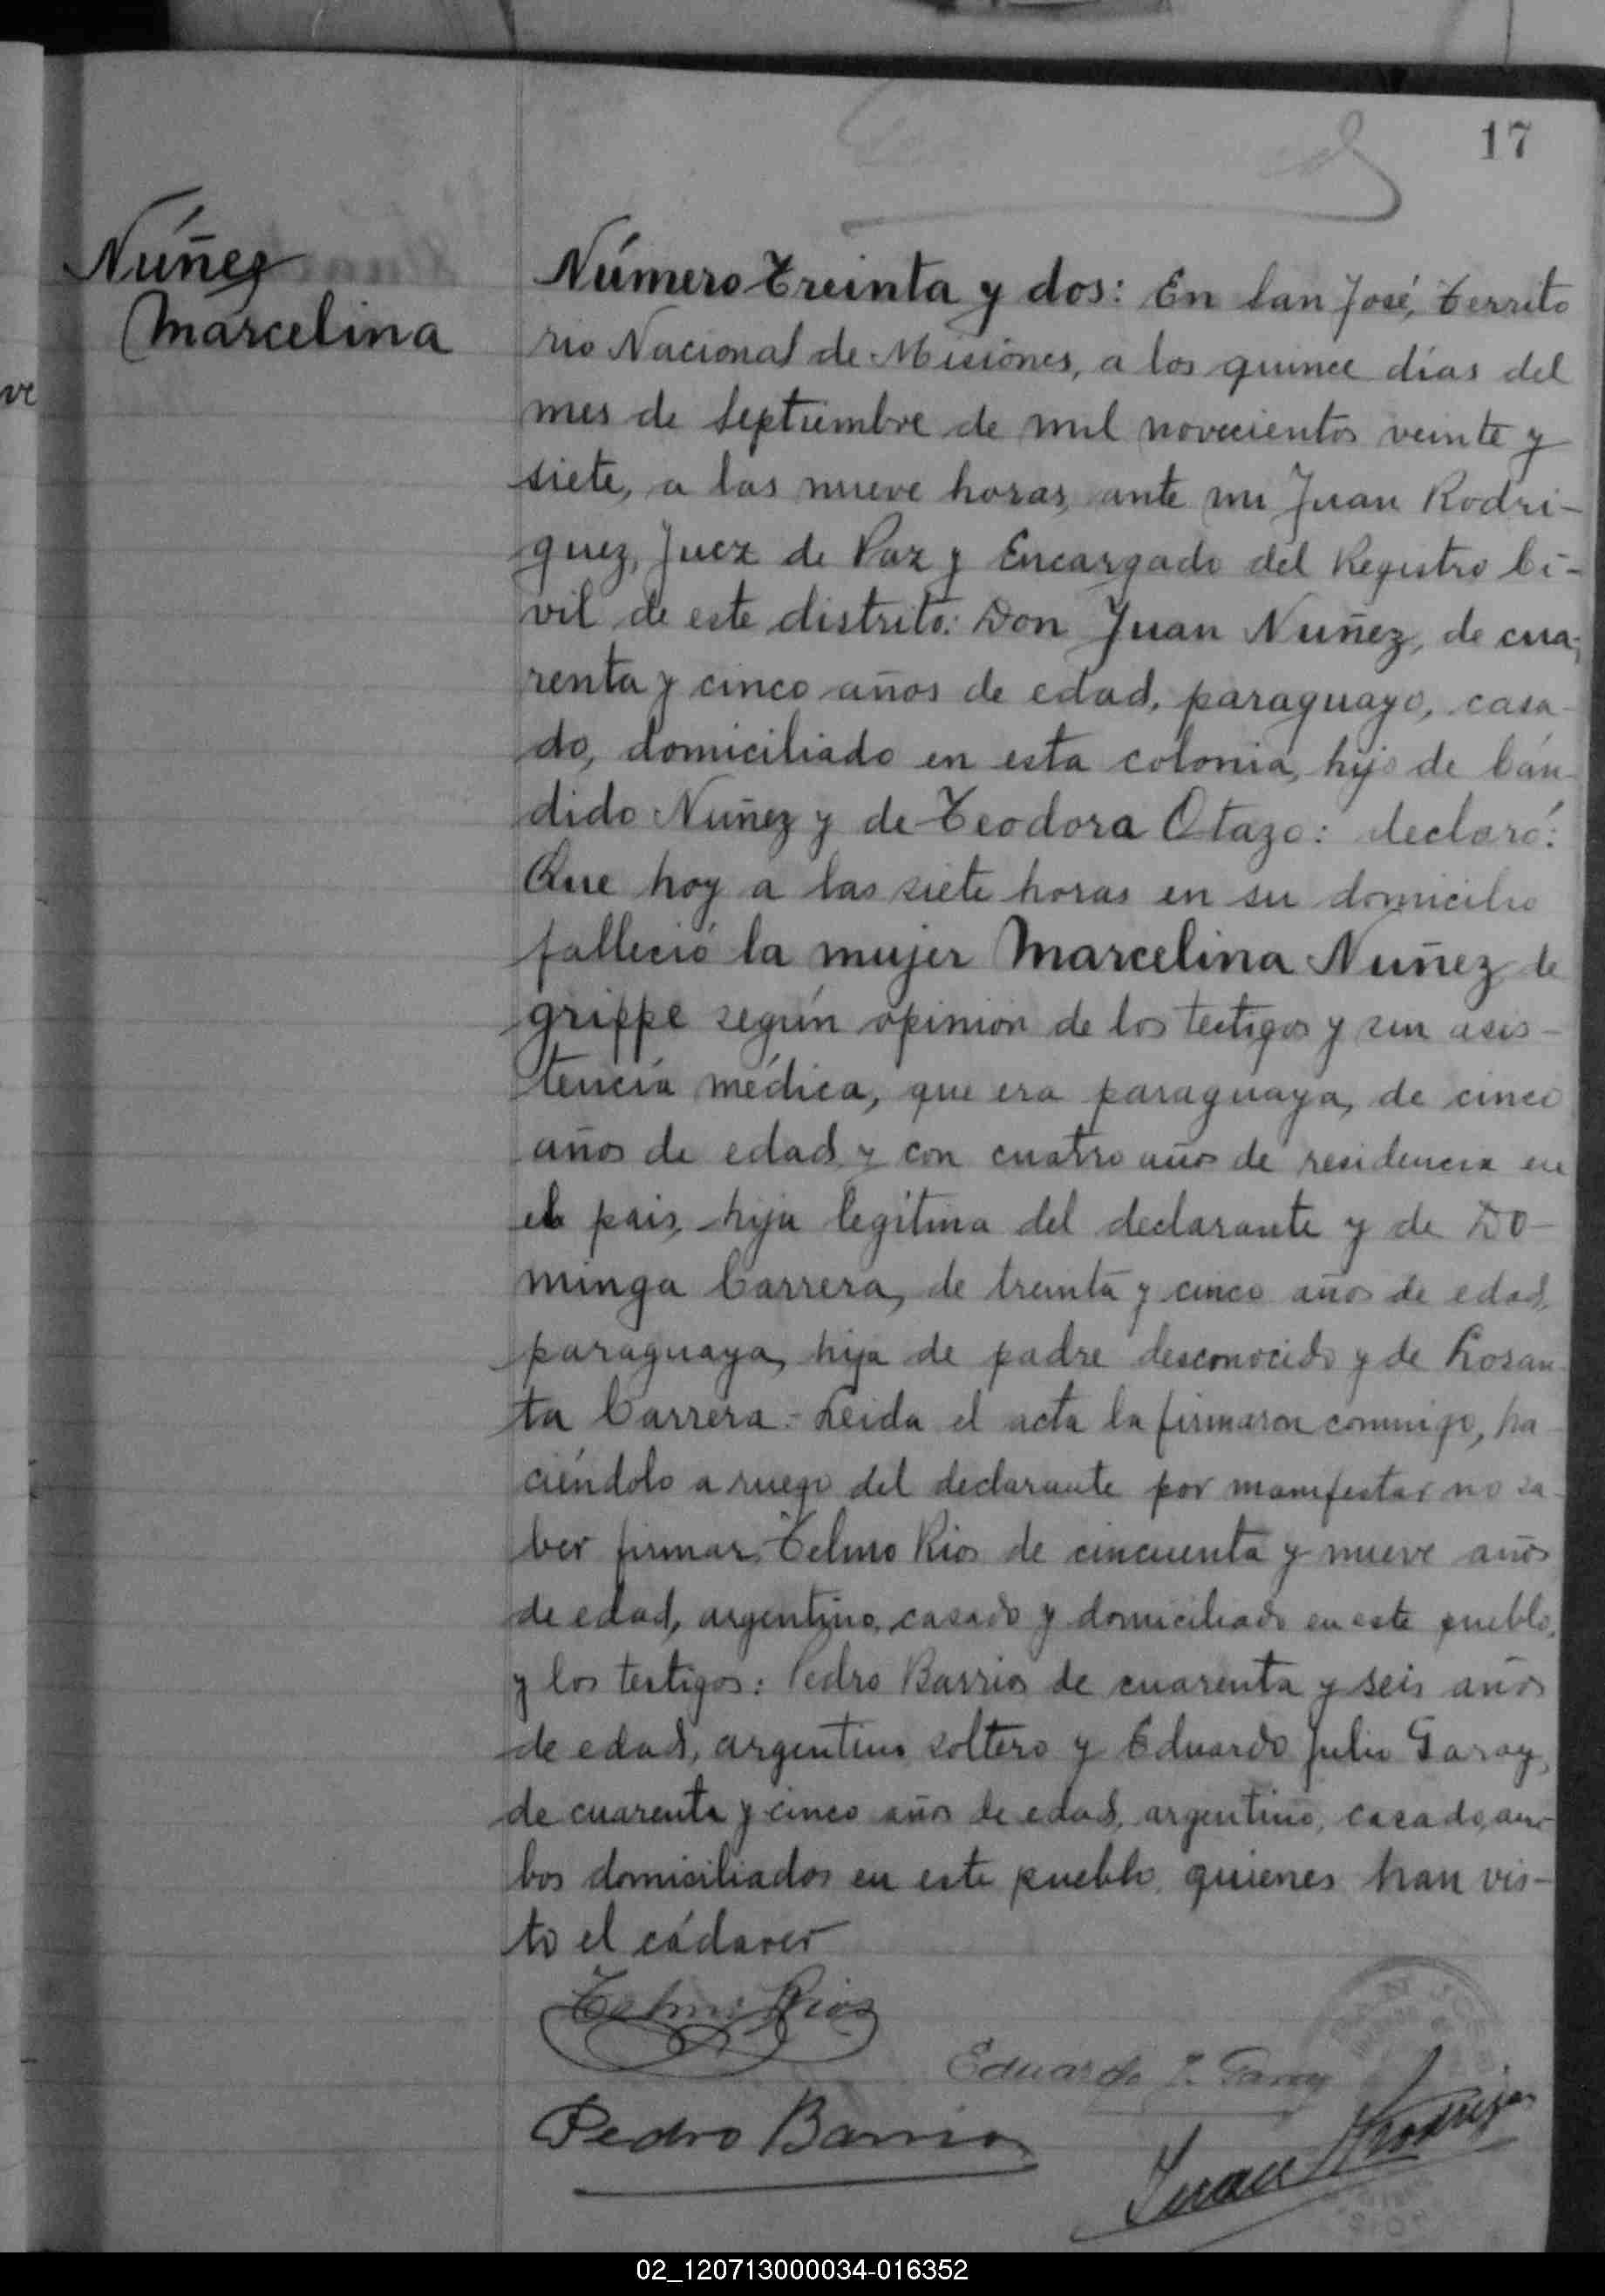 17
Núñez
Marcelina
ve
Número treinta y dos: En San José, territo
rio Nacional de Misiones, a los quince días del
mes de Septiembre de mil novecientos veinte y
siete, a las nueve horas, ante mi Juan Rodri-
guez, Juez de Paz y Encargado del Registro Ci-
vil de este distrito: Don Juan Nuñez, de cua-
renta y cinco años de edad, paraguayo, casa-
do, domiciliado en esta colonia, hijo de Cán-
dido Nuñez y de Teodora Otazo: declaró:
Que hoy a las siete horas en su domicilio
falleció la mujer Marcelina Nuñez de
grippe según opinion de los testigos y sin asis-
tencia médica, que era paraguaya, de cinco
años de edad y con cuatro años de residencia en
el pais, hija legítima del declarante y de Do-
minga Carrera, de treinta y cinco años de edad,
paraguaya, hija de padre desconocido y de Rosan-
ta Carrera.- Leida el acta la firmaron conmigo, ha-
ciéndolo a ruego del declarante por manifestar no sa-
ber firmar, Telmo Rios de cincuenta y nueve años
de edad, argentino, casado y domiciliado en este pueblo,
y los testigos: Pedro Barrios de cuarenta y seis años
de edad, argentino soltero y Eduardo Julio Garay,
de cuarenta y cinco años de edad, argentino, casado, am-
bos domiciliados en este pueblo, quienes han vis-
to el cádaver
Telmo Rios
Eduardo J. Garay
Pedro Barrios
Juan Rodriguez
02_120713000034-016352